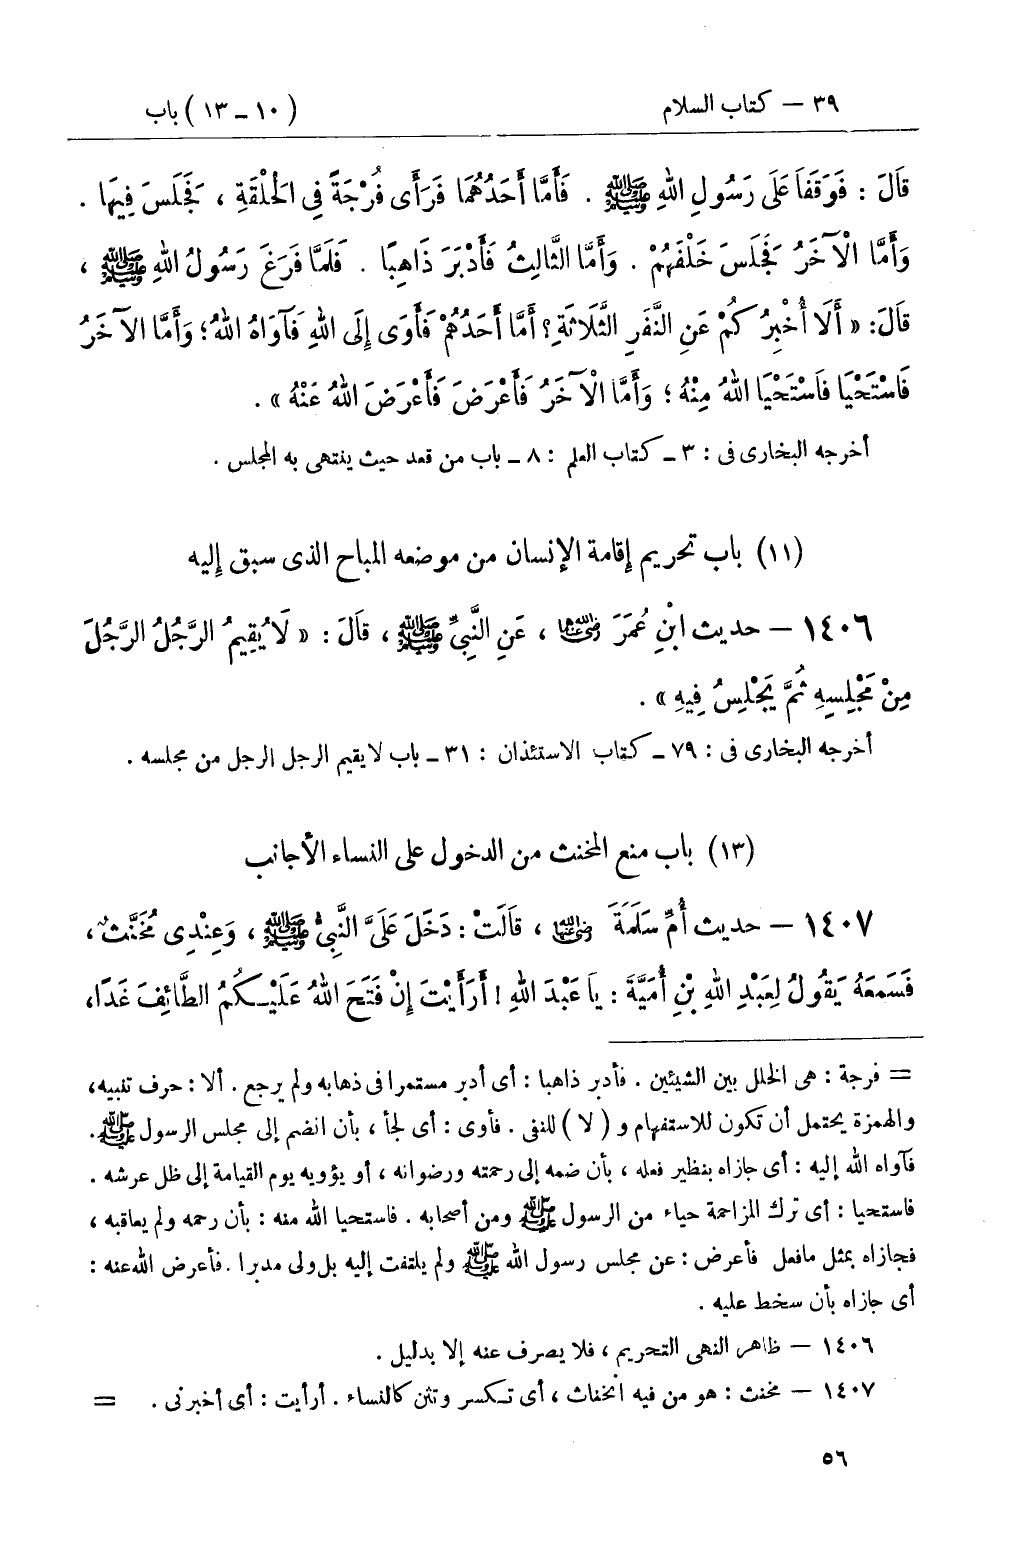 ٣٩ – كتاب السلام (١٠ – ١٣) باب
قَالَ : فَوَقَفَا عَلَى رَسُولِ اللهِ ﷺ . فَأَمَّا أَحَدُهُمَا فَرَأَى فُرْجَةً فِى الْحَلْقَةِ ، فَجَلَسَ فِيهَا .
وَأَمَّا الْآخَرُ فَجَلَسَ خَلْفَهُمْ . وَأَمَّا الثَّالِثُ فَأَدْبَرَ ذَاهِبًا . فَلَمَّا فَرَغَ رَسُولُ اللهِ ﷺ ،
قَالَ: « أَلَا أُخْبِرُكُمْ عَنِ النَّفَرِ الثَّلَاثَةِ؟ أَمَّا أَحَدُهُمْ فَأَوَى إِلَى اللهِ فَآوَاهُ اللهُ؛ وَأَمَّا الآخَرُ
فَاسْتَحْيَا فَاسْتَحْيَا اللهُ مِنْهُ ؛ وَأَمَّا الْآخَرُ فَأَعْرَضَ فَأَعْرَضَ اللهُ عَنْهُ » .
أخرجه البخارى فى : ٣ – كتاب العلم : ٨ – باب من قعد حيث ينتهى به المجلس .
(١١) باب تحريم إقامة الإنسان من موضعه المباح الذى سبق إليه
١٤٠٦ – حديث ابْنِ عُمَرَ رضي الله عنهما ، عَنِ النَّبِىِّ ﷺ ، قَالَ : « لَا يُقِيمُ الرَّجُلُ الرَّجُلَ
مِنْ مَجْلِسِهِ ثُمَّ يَجْلِسُ فِيهِ » .
أخرجه البخارى فى : ٧٩ – كتاب الاستئذان : ٣١ – باب لا يقيم الرجل الرجل من مجلسه .
(١٣) باب منع المخنث من الدخول على النساء الأجانب
١٤٠٧ – حديث أُمِّ سَلَمَةَ رضي الله عنها ، قَالَتْ : دَخَلَ عَلَىَّ النَّبِىُّ ﷺ ، وَعِنْدِى مُخَنَّثٌ ،
فَسَمِعَهُ يَقُولُ لِعَبْدِ اللهِ بْنِ أُمَيَّةَ : يَا عَبْدَ اللهِ ! أَرَأَيْتَ إِنْ فَتَحَ اللهُ عَلَيْكُمُ الطَّائِفَ غَدًا،
= فرجة : هى الخلل بين الشيئين . فأدبر ذاهبا : أى أدبر مستمرا فى ذهابه ولم يرجع . ألا : حرف تنبيه،
والهمزة يحتمل أن تكون للاستفهام و ( لا ) للنفى . فأوى : أى لجأ ، بأن انضم إلى مجلس الرسول ﷺ.
فآواه الله إليه : أى جازاه بنظير فعله ، بأن ضمه إلى رحمته ورضوانه ، أو يؤويه يوم القيامة إلى ظل عرشه .
فاستحيا : أى ترك المزاحمة حياء من الرسول ﷺ ومن أصحابه . فاستحيا الله منه : بأن رحمه ولم يعاقبه ،
فجازاه بمثل مافعل فأعرض : عن مجلس رسول الله ﷺ ولم يلتفت إليه بل ولى مدبرا . فأعرض الله عنه :
أى جازاه بأن سخط عليه .
١٤٠٦ – ظاهر النهى التحريم ، فلا يصرف عنه إلا بدليل .
١٤٠٧ – مخنث : هو من فيه انخناث ، أى تكسر وتثن كالنساء . أرأيت : أى أخبرنى . =
٥٦